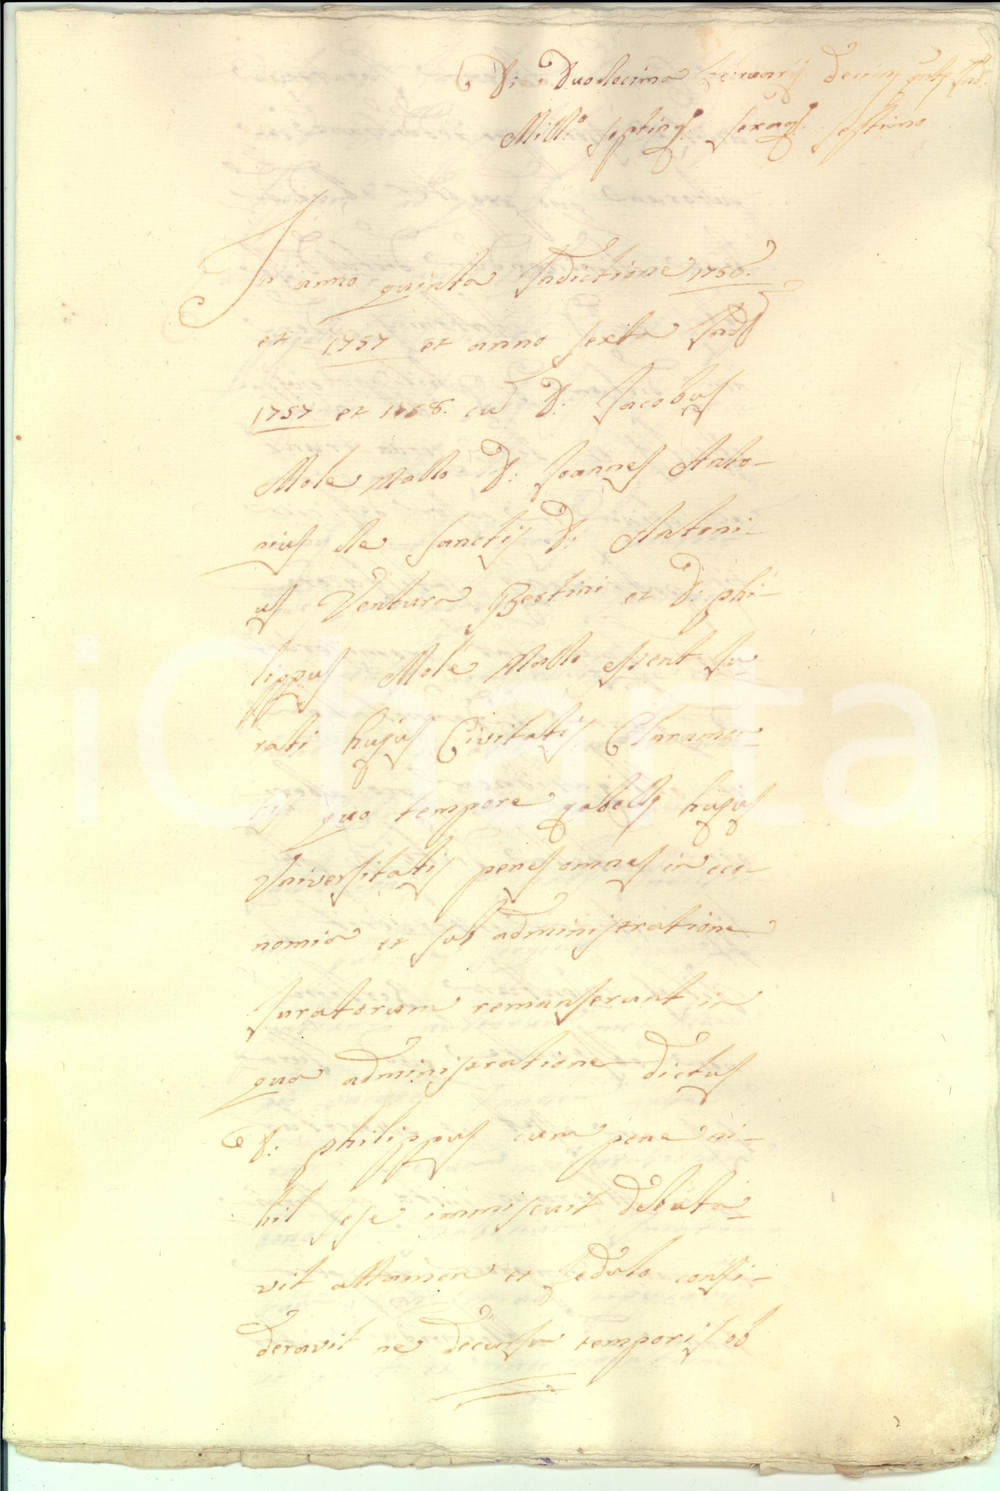 Die Duodecima Februarij Decime quinte Ind.
Mill.º septing. sexag. septimo
In anno quinta Indictione 1756.
et 1757 et anno sexta Ind.
1757 et 1758. cu D: Jacobus
Mole Mallo D: Joannes Anto-
nius de Sanctis D. Antoni-
us Ventura Bertini et D. phi-
lippus Mole Mallo essent Ju-
rati hujus Civitatis Claramon-
tis quo tempore gabelle hujus
Universitatis penes omnes in eco-
nomia et sub administratione
Juratorum remanserunt in
qua administratione dictus
D: philippus cum pene ni-
hil sese immiscuit debita-
vit attamen et sedulo consi-
deravit ne decursu temporis ob
iCharta